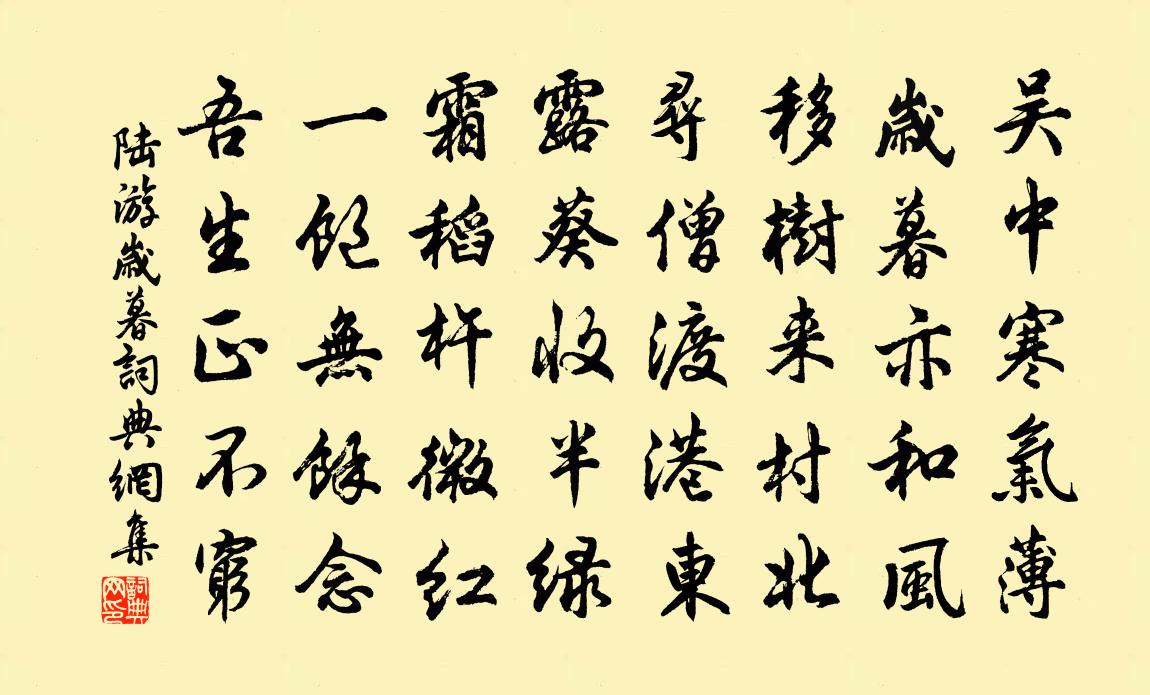 吴中寒氣薄
歲暮亦和風
移樹来村北
尋僧渡港東
露葵收半绿
霜稻杵微红
一飽無餘念
吾生正不窮
陆游歲暮詞典網集
詞典网印